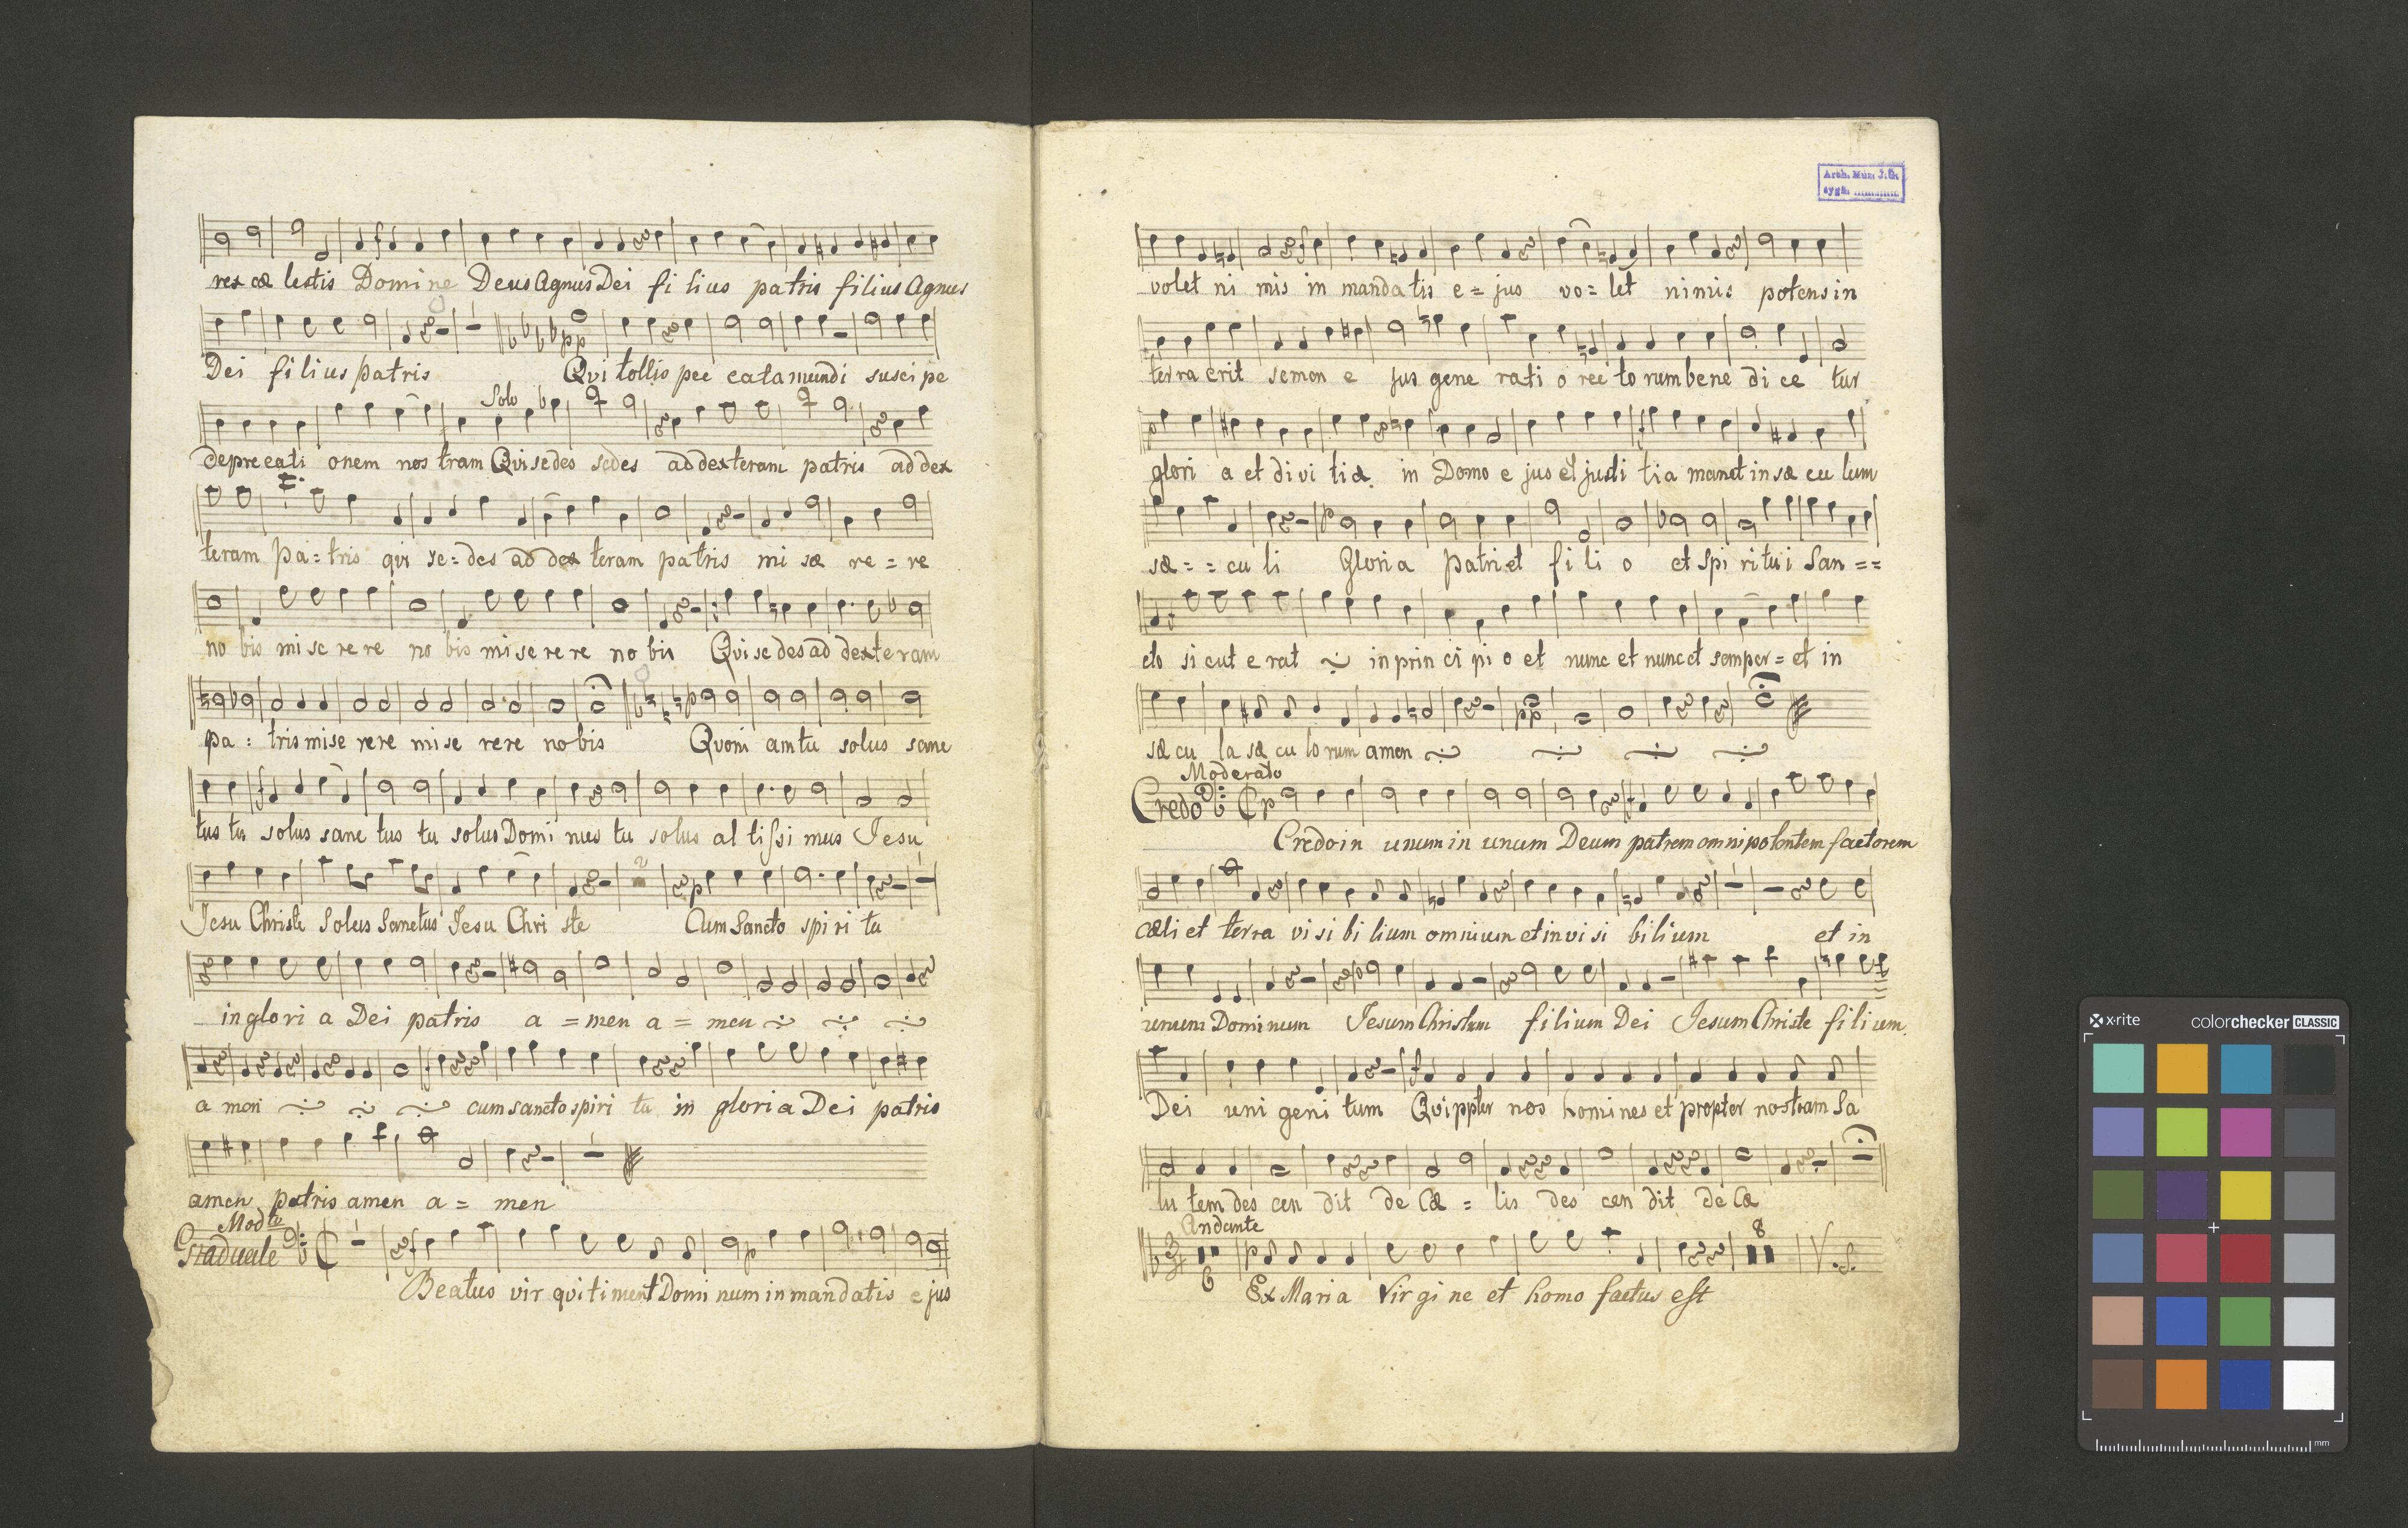 rex cæ lestis Domine Deus Agnus Dei fi lius patris filius Agnus
Dei filius patris Qvi tollis pec cata mundi susci pe
Solo
depreca ti onem nos tram Qvi sedes sedes ad dexteram patris ad dex
teram pa = tris qvi se = des ad dex teram patris mi sæ re = re
no bis mi se re re no bis mi se re re no bis Qvi se des ad dexteram
pa : tris mise rere mi se rere nobis Qvoni am tu solus sanc
tus tu solus sanc tus tu solus Domi nus tu solus al tissi mus Jesu
2
Jesu Christe Solus Sanctus Jesu Chri ste Cum Sancto spi ri tu
in glori a Dei patris a = men a = men
a men cum sancto spiri tu in gloria Dei patris
amen patris amen a = men
Modto
Graduale
Beatus vir qvi timent Domi num in mandatis e jus
Arch. Muz. J.G.
sygn.
volet ni mis in manda tis e = jus vo = let nimis potens in
terra erit semen e jus gene rati o rec to rum bene di ce tur
glori a et di vi tiæ in Domo e jus et justi tia manet in sæ cu lum
sæ = = cu li Gloria patri et fi li o et spi ri tui San = =
cto si cut e rat in prin ci pi o et nunc et nunc et semper = et in
sæ cu la sæ cu lo rum amen
Moderato
Credo
Credo in unum in unum Deum patrem omnipotentem factorem
cæli et terra vi si bi lium omnium et in vi si bilium et in
unum Dominum Jesum Christum filium Dei Jesum Christe filium
Dei uni geni tum Qvi ppter nos homines et propter nostram Sa
lu tem des cen dit de Cæ = lis des cen dit de Cæ
Andante
6 8 V. S.
Ex Maria Virgi ne et homo factus est
x·rite colorchecker CLASSIC
mm